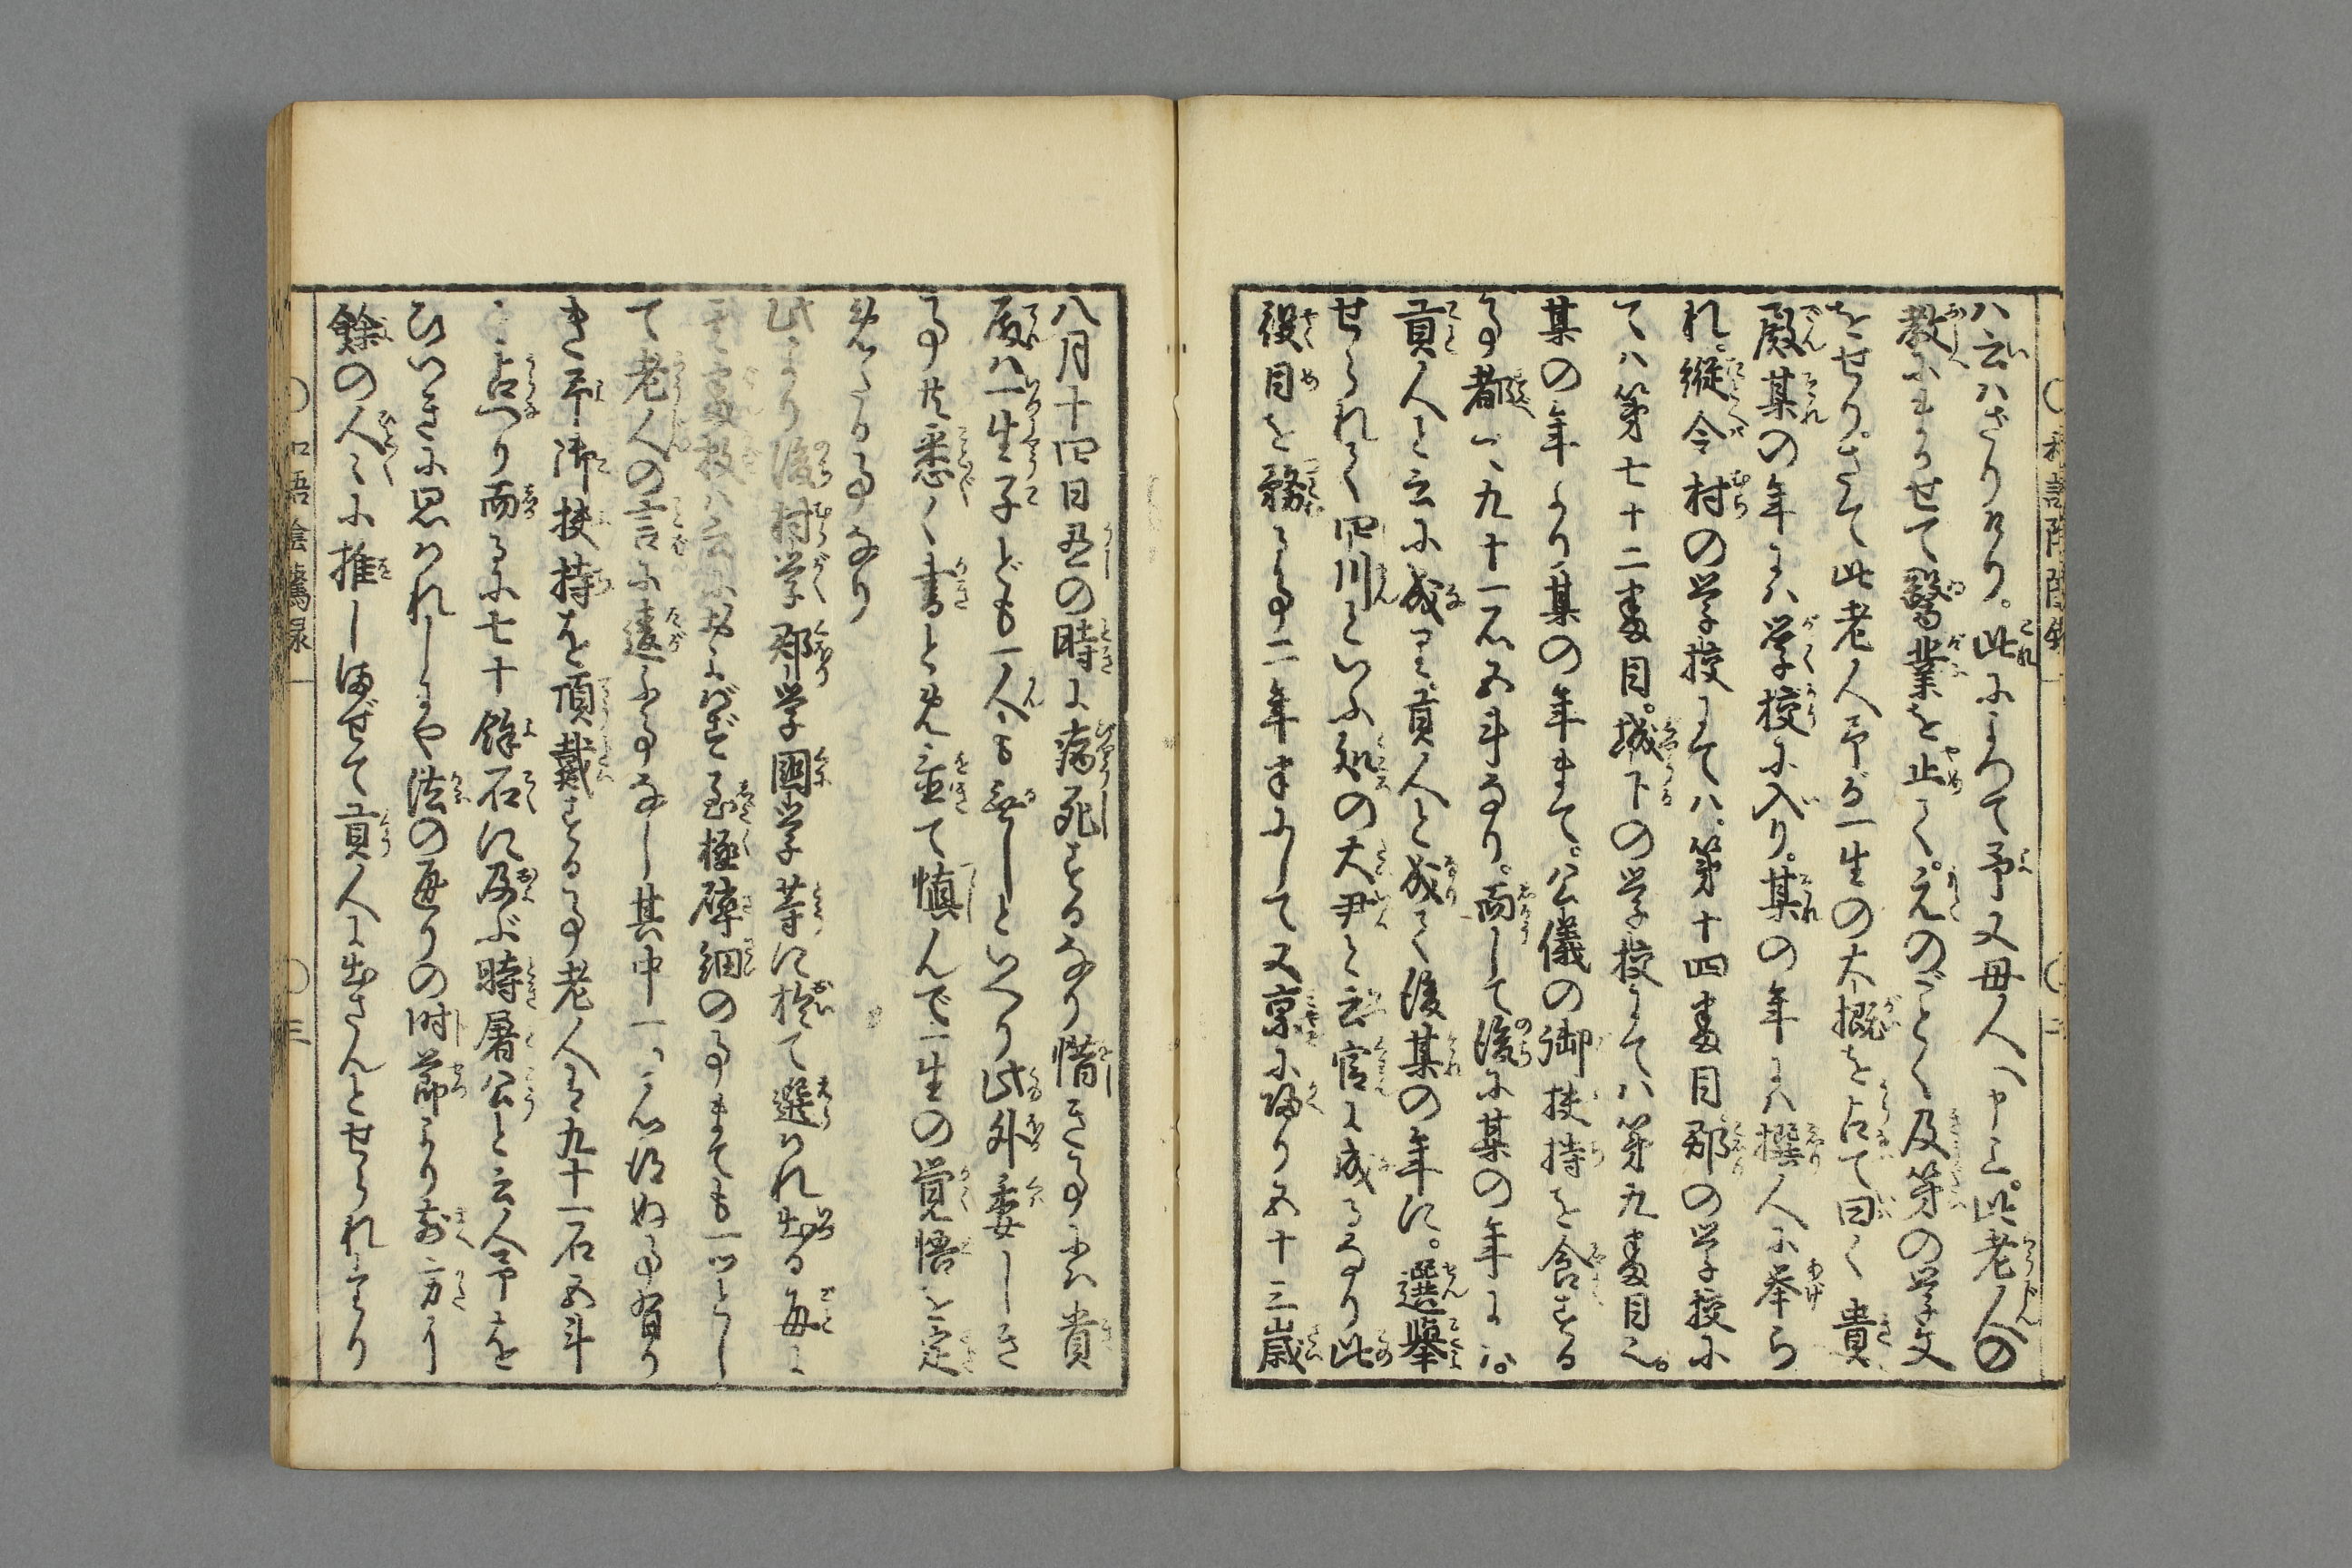 ハ云ハざりけり。此によつて予又母人へ申ス。此老人の
教にまかせて醫業を止て。元のごとく及第の学文
をせり。さて此老人予が一生の大概を占て曰く貴
殿某の年にハ学校に入り。某の年にハ撰人に挙ら
れ。縦令村の学校にてハ、第十四番目郡の学校に
てハ第七十二番目。城下の学校にてハ第九番目と。
某の年より某の年まで。公儀の御扶持を食する
事都て、九十一石五斗なり。而して後に某の年にハ。
貢人と云に成ると。貢人と成て後某の年に。選擧
せられて四川といふ処の大尹と云官に成るなり此
役目を務る事二年半にして又京に帰り五十三歳
八月十四日丑の時に病死するなり惜き事にハ貴
殿ハ一生子ども一人も無しといへり此外委しき
事共悉く書とめ置て慎んで一生の覚悟を定
めたる事なり
此より後村学郡学國学等に於て選れ出る毎に
其番数ハ云に及ばず至極碎細の事までも一つとし
て老人の言に違ふ事なし其中一ツ心得ぬ事有り
き予御扶持を頂戴する事老人は九十一石五斗
と占へり而るに七十餘石に及ぶ時屠公と云人予を
ひいきに思ハれしにや法の通りの時節より前方に
餘の人々に推しまぜて貢人に出さんとせられけり
和語陰隲録一
三